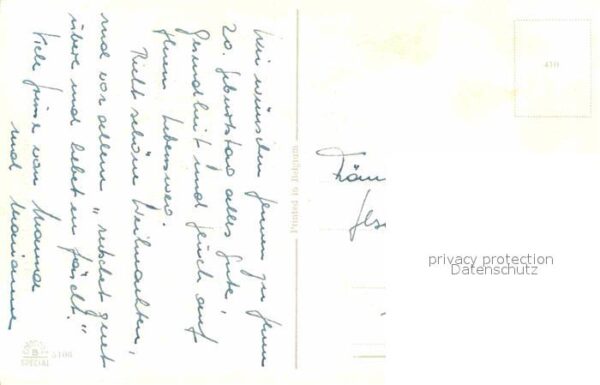 Wir wünschen Ihnen zu Ihrem
20. Geburtstag alles Gute,
Gesundheit und Glück auf
Ihrem Lebensweg.
Recht schöne Weihnachten,
und vor allem "rutschet gut
über und lebet im
Viele Grüße von Mama
und Marianne
Printed in Belgium
410
Fräu
privacy protection
Datenschutz
B
5100
SPECIAL